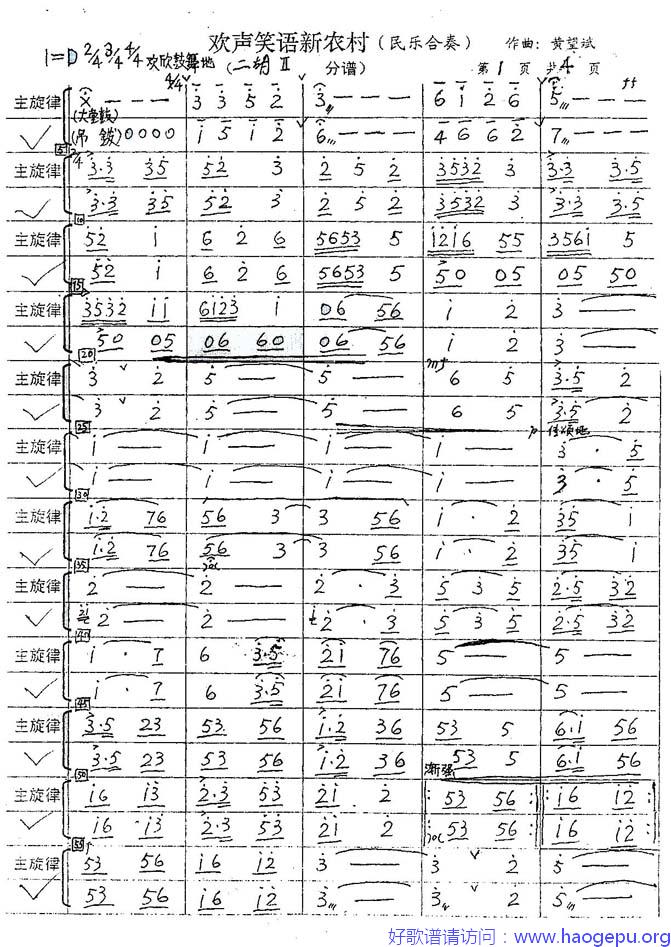 欢声笑语新农村(民乐合奏) 作曲: 黄望斌
1=D 2/4 3/4 4/4 欢欣鼓舞地 (二胡 II 分谱) 第 1 页 共 4 页
4/4 ff
主旋律 X — — — 3 3 5 2 3 — — — 6 1 2 6 5 — — —
(大堂鼓)
(吊 钹) 0 0 0 0 1 5 1 2 6 — — — 4 6 6 2 7 — — —
5 2/4
主旋律 3·3 35 52 3 2 5 2 3532 3 3·3 3·5
3·3 35 52 3 2 5 2 3532 3 3·3 3·5
10
主旋律 52 1 6 2 6 5653 5 1216 55 3561 5
52 1 6 2 6 5653 5 50 05 05 50
15
主旋律 3532 11 6123 1 06 56 1 2 3 —
50 05 06 60 06 56 1 2 3 —
20 mf
主旋律 3 2 5 — 5 — 6 5 3·5 2
3 2 5 — 5 — 6 5 3·5 2
25 p 传颂地
主旋律 1 — 1 — 1 — 1 — 3 · 5
1 — 1 — 1 — 1 — 3 · 5
30
主旋律 1·2 76 56 3 3 56 1 · 2 35 1
1·2 76 56 3 3 56 1 · 2 35 1
35
主旋律 2 — 2 — 2 · 3 5 3 5 2·5 32
2 — 2 — 2 · 3 5 3 5 2·5 32
40
主旋律 1 · 7 6 3·5 21 76 5 — 5 —
1 · 7 6 3·5 21 76 5 — 5 —
45
主旋律 3·5 23 53 56 1·2 36 53 5 6·1 56
3·5 23 53 56 1·2 36 53 5 6·1 56
50 渐强
主旋律 16 13 2·3 53 21 2 : 53 56 : : 16 12 :
16 13 2·3 53 21 2 : 53 56 : : 16 12 :
55
主旋律 53 56 16 12 3 — 3 2 5 —
53 56 16 12 3 — 3 2 5 —
好歌谱请访问：www.haogepu.org